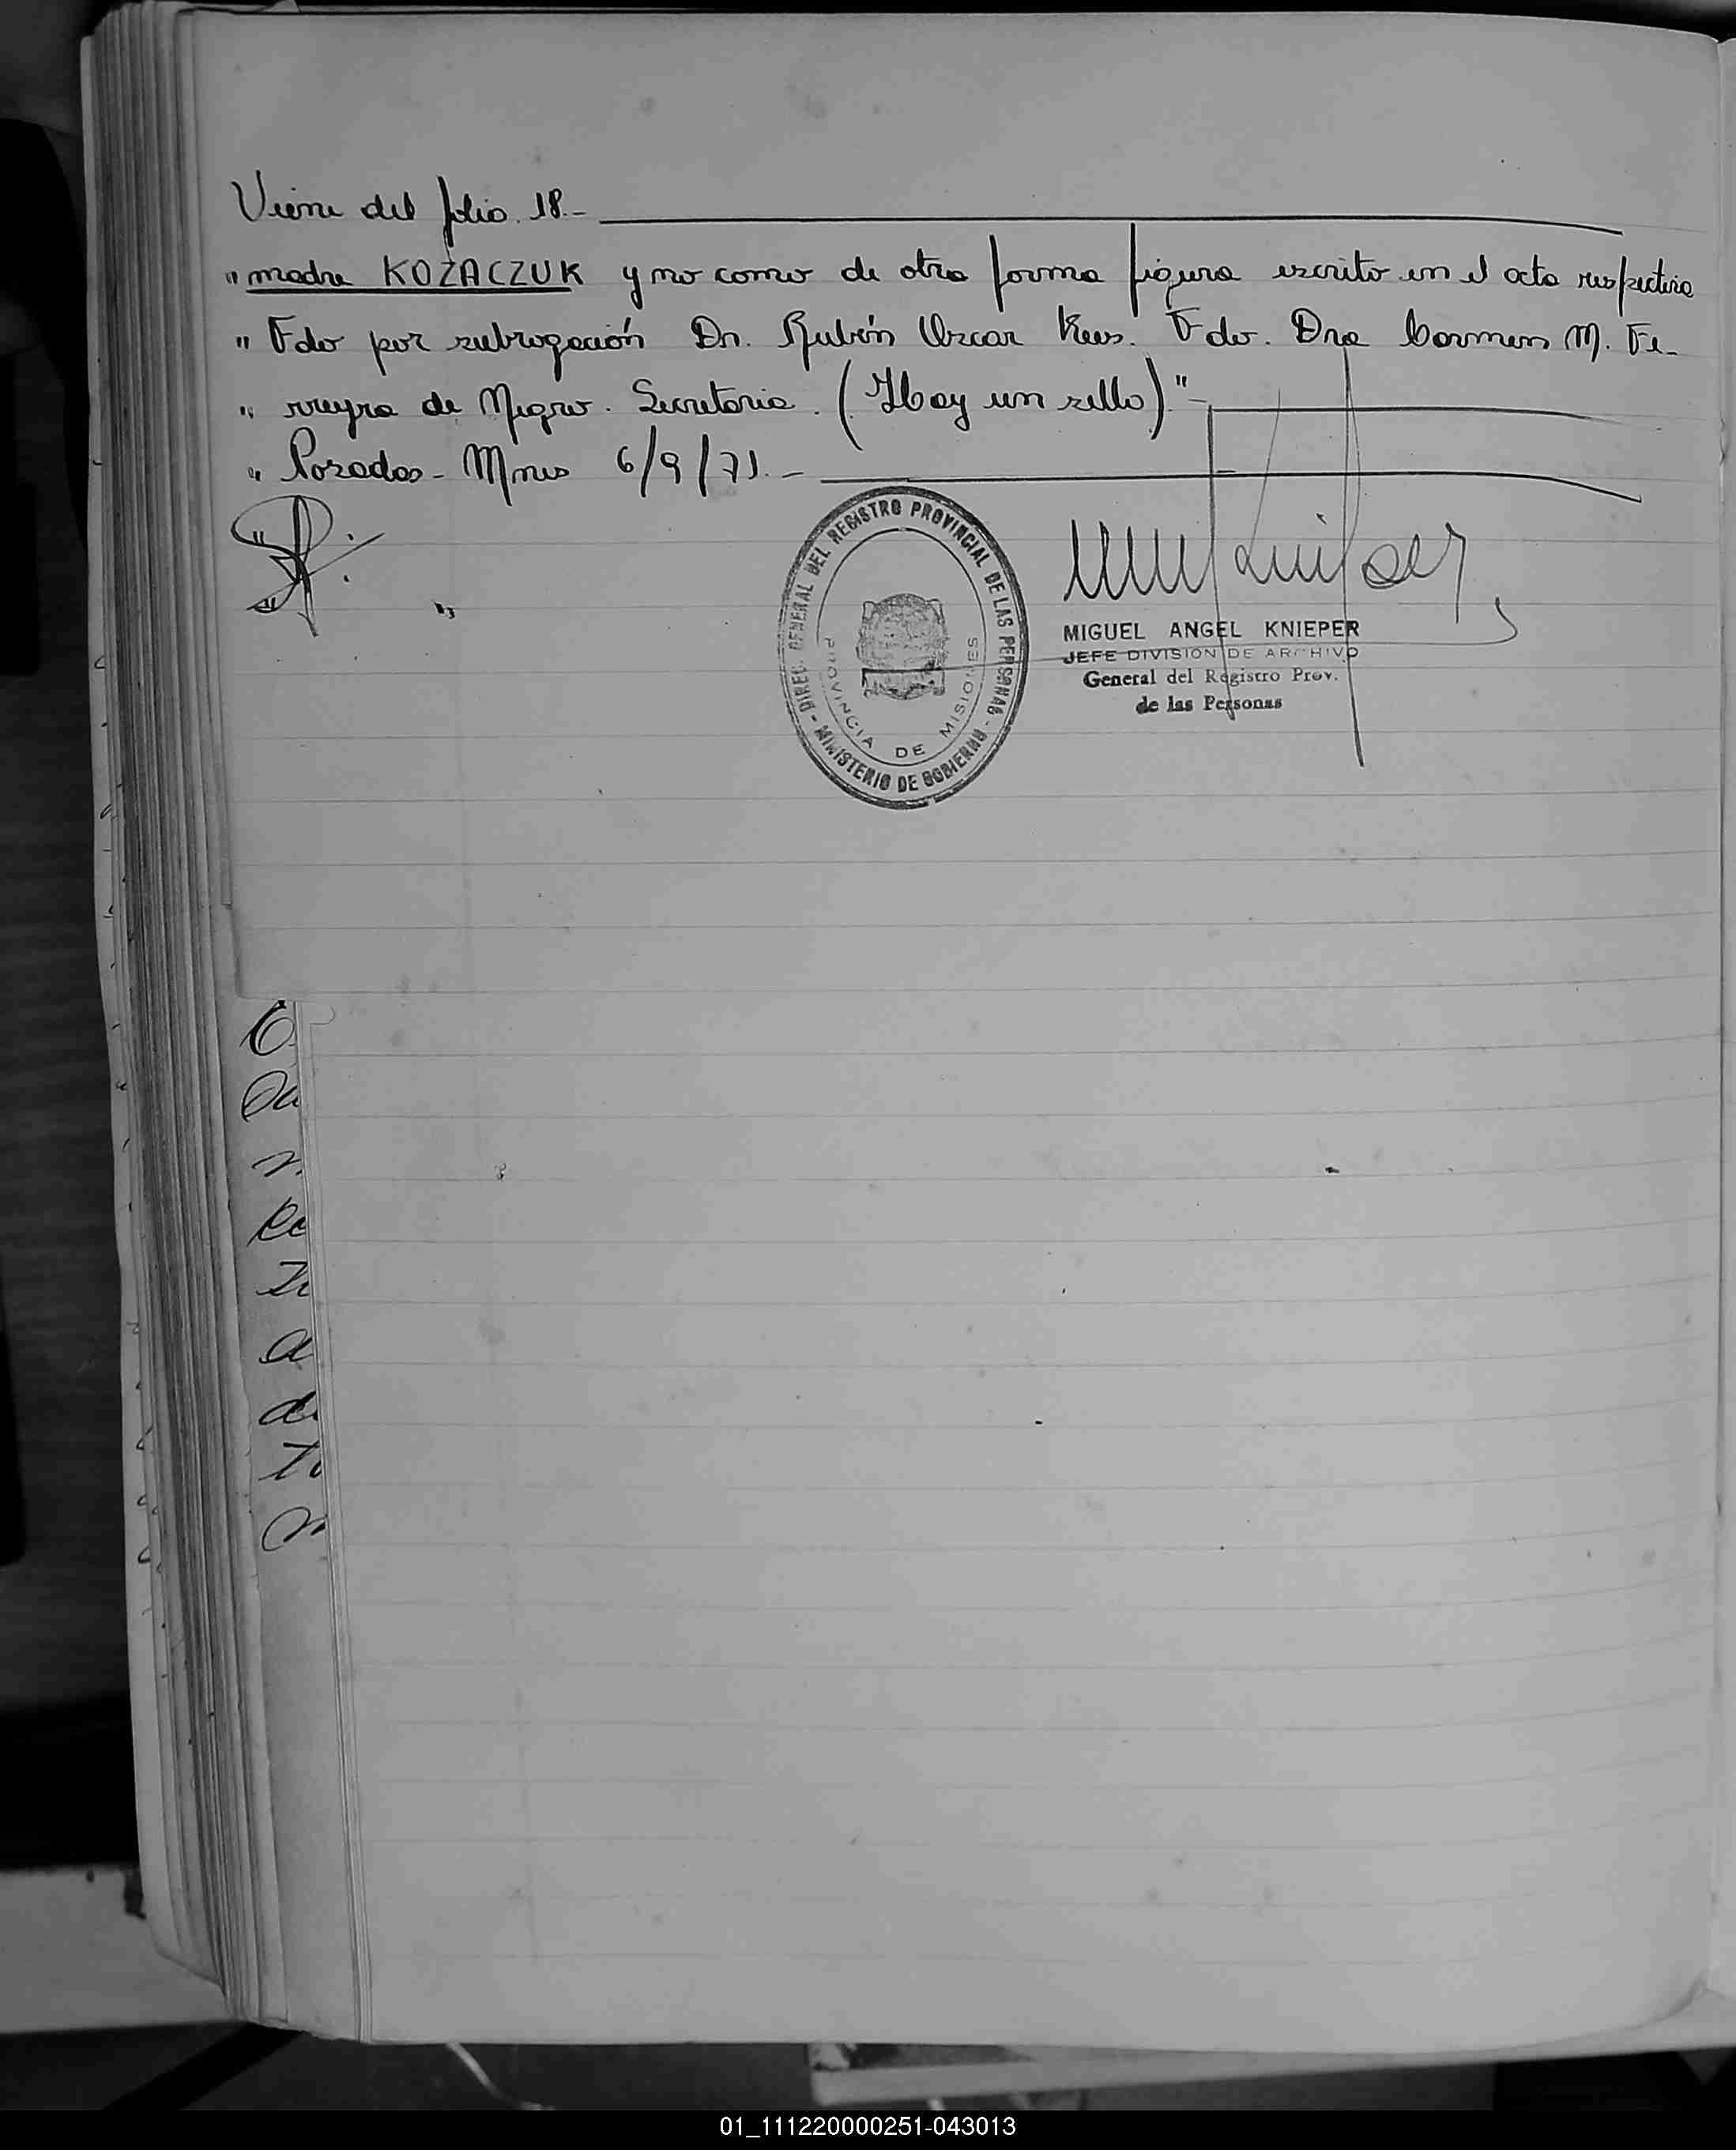 Viene del folio. 18.-
" madre KOZACZUK y no como de otra forma figura escrito en el acta respectiva
" Fdo por subrogación Dr. Rubén Oscar Kees. Fdo. Dra Carmen M. Fe-
" rreyra de Negro. Secretaria. (Hay un sello)."-
" Posadas - Mnes 6/9/71.-
DIREC. GENERAL DEL REGISTRO PROVINCIAL DE LAS PERSONAS - MINISTERIO DE GOBIERNO -
PROVINCIA DE MISIONES
MIGUEL ANGEL KNIEPER
JEFE DIVISION DE ARCHIVO
General del Registro Prov.
de las Personas
01_111220000251-043013